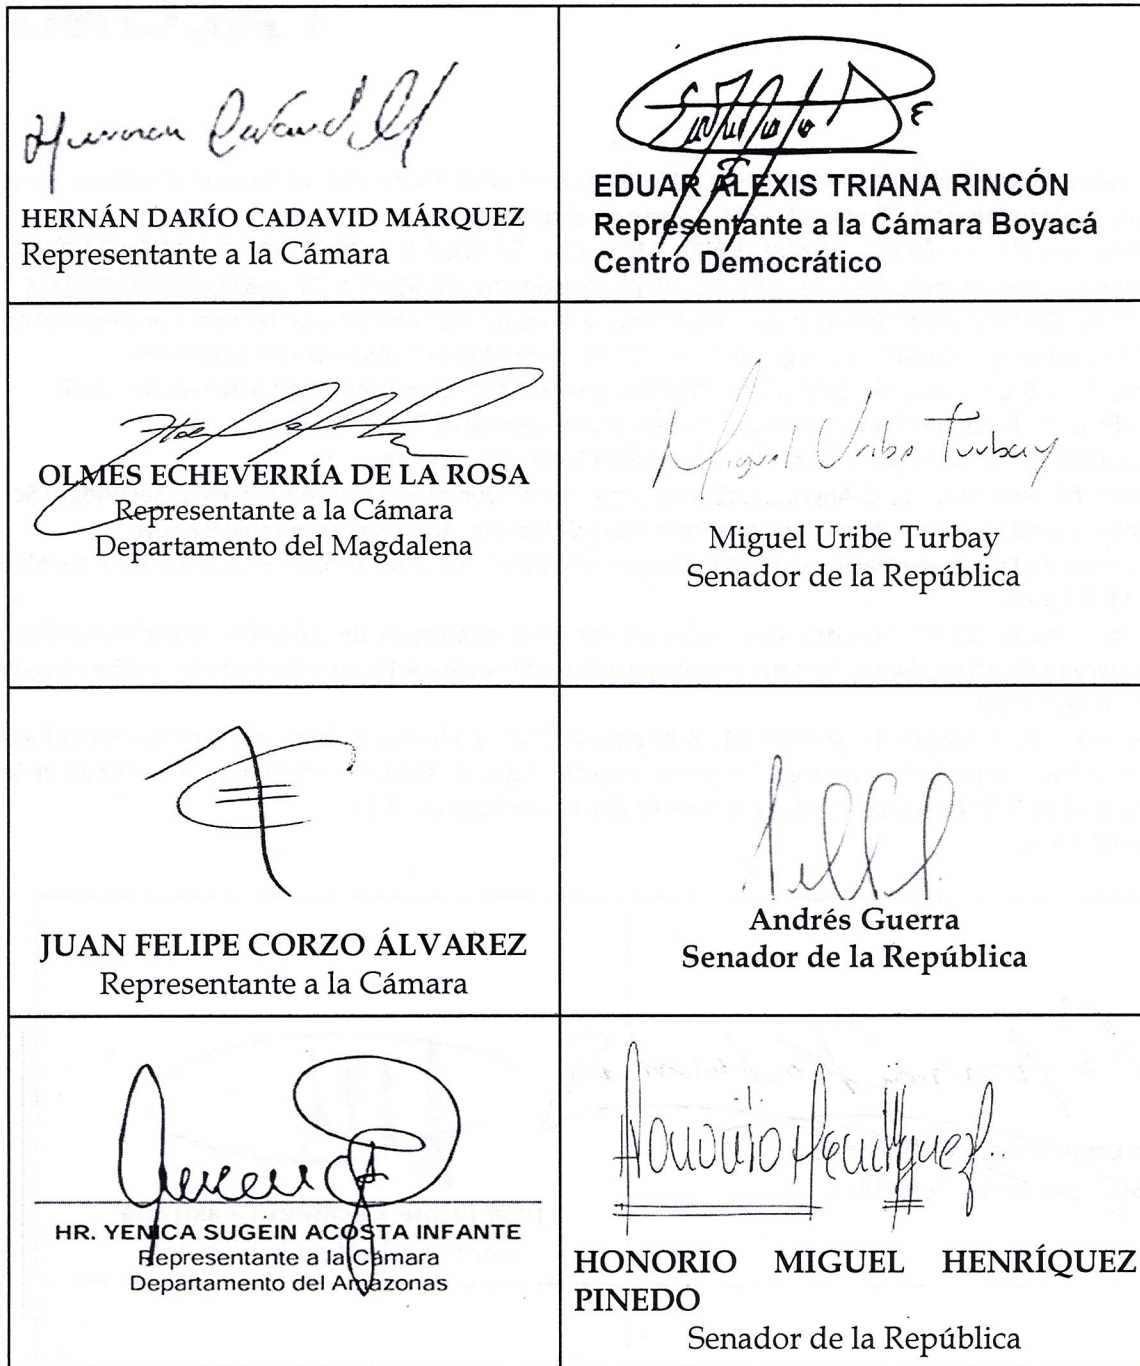 Hernan Cadavid M
HERNÁN DARÍO CADAVID MÁRQUEZ
Representante a la Cámara
EDUAR ALEXIS TRIANA RINCÓN
Representante a la Cámara Boyacá
Centro Democrático
OLMES ECHEVERRÍA DE LA ROSA
Representante a la Cámara
Departamento del Magdalena
Miguel Uribe Turbay
Miguel Uribe Turbay
Senador de la República
JUAN FELIPE CORZO ÁLVAREZ
Representante a la Cámara
Andrés Guerra
Senador de la República
HR. YENICA SUGEIN ACOSTA INFANTE
Representante a la Cámara
Departamento del Amazonas
Honorio Henríquez
HONORIO MIGUEL HENRÍQUEZ
PINEDO
Senador de la República